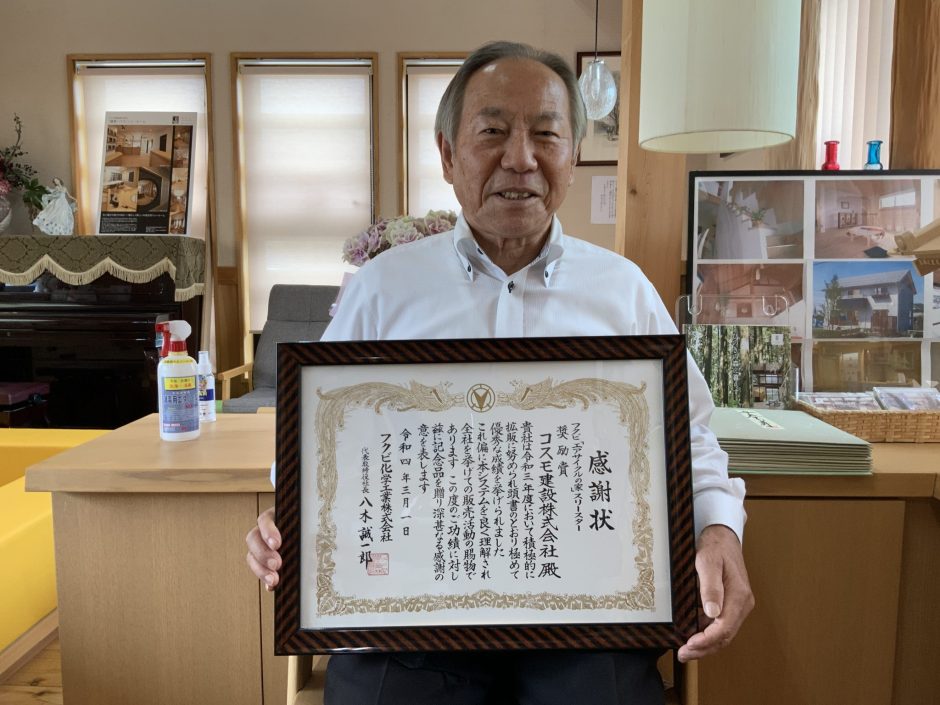 感謝状
フクビ「エアサイクルの家」スリースター
奨励賞
コスモ建設株式会社 殿
貴社は令和三年度において積極的に
拡販に努められ頭書のとおり極めて
優秀な成績を挙げられました
これ偏に本システムを良く理解され
全社を挙げての販売活動の賜物で
あります この度のご功績に対し
玆に記念品を贈り深甚なる感謝の
意を表します
令和四年三月一日
フクビ化学工業株式会社
代表取締役社長 八木誠一郎